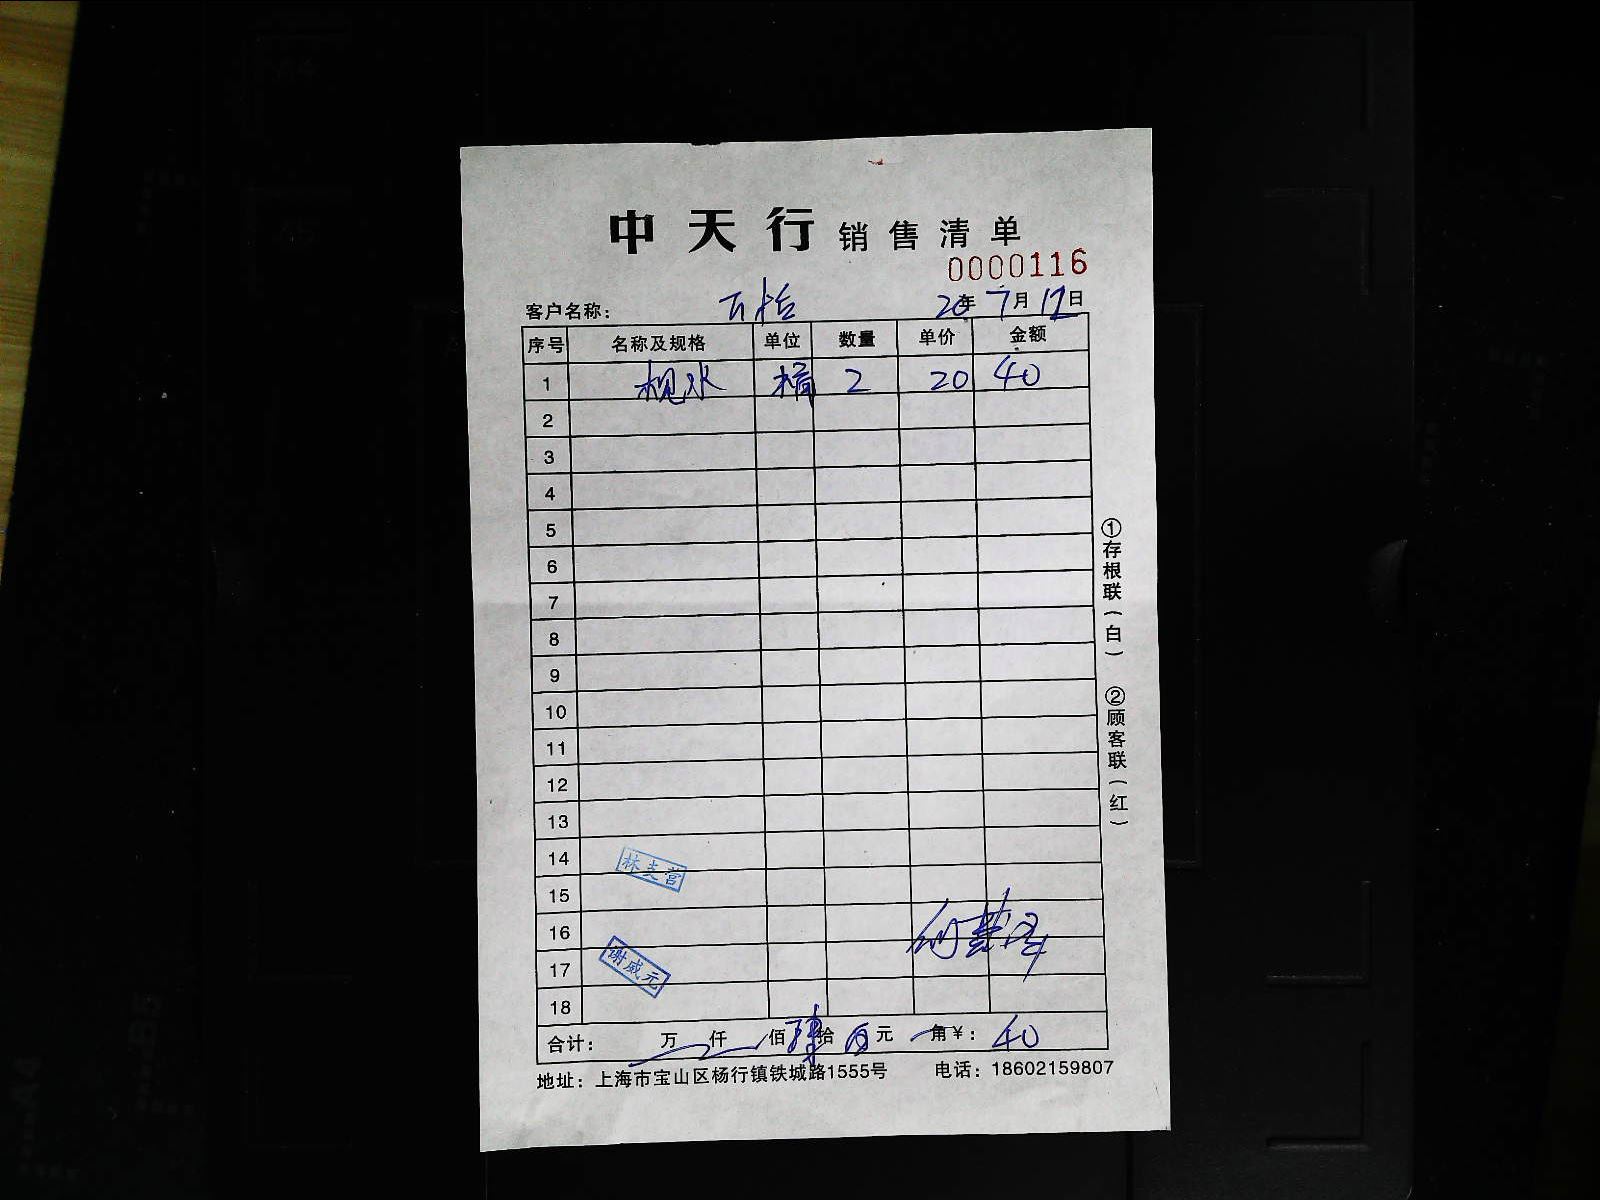 中天行 销售清单
0000116
客户名称： 20年7月12日
序号 名称及规格 单位 数量 单价 金额
1 枧水 桶 2 20 40
2
3
4
5
6
7
8
9
10
11
12
13
14
林支营
15
16
17
谢威元
18
合计： 万 仟 佰 肆拾 元 角 ¥：40
地址：上海市宝山区杨行镇铁城路1555号 电话：18602159807
①存根联（白） ②顾客联（红）